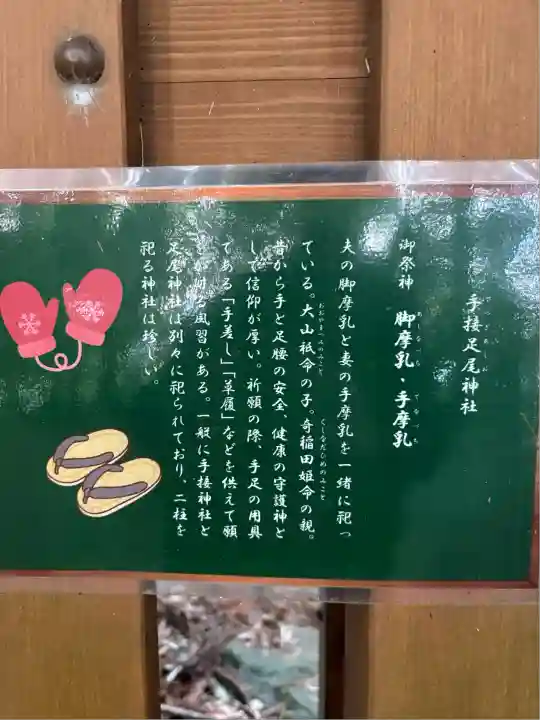 手接足尾神社
御祭神 脚摩乳・手摩乳
夫の脚摩乳と妻の手摩乳を一緒に祀っ
ている。大山祇命の子。奇稲田姫命の親。
昔から手と足腰の安全、健康の守護神と
して信仰が厚い。祈願の際、手足の用具
である「手差し」「草履」などを供えて願
ける風習がある。一般に手接神社と
足尾神社は別々に祀られており、二柱を
祀る神社は珍しい。